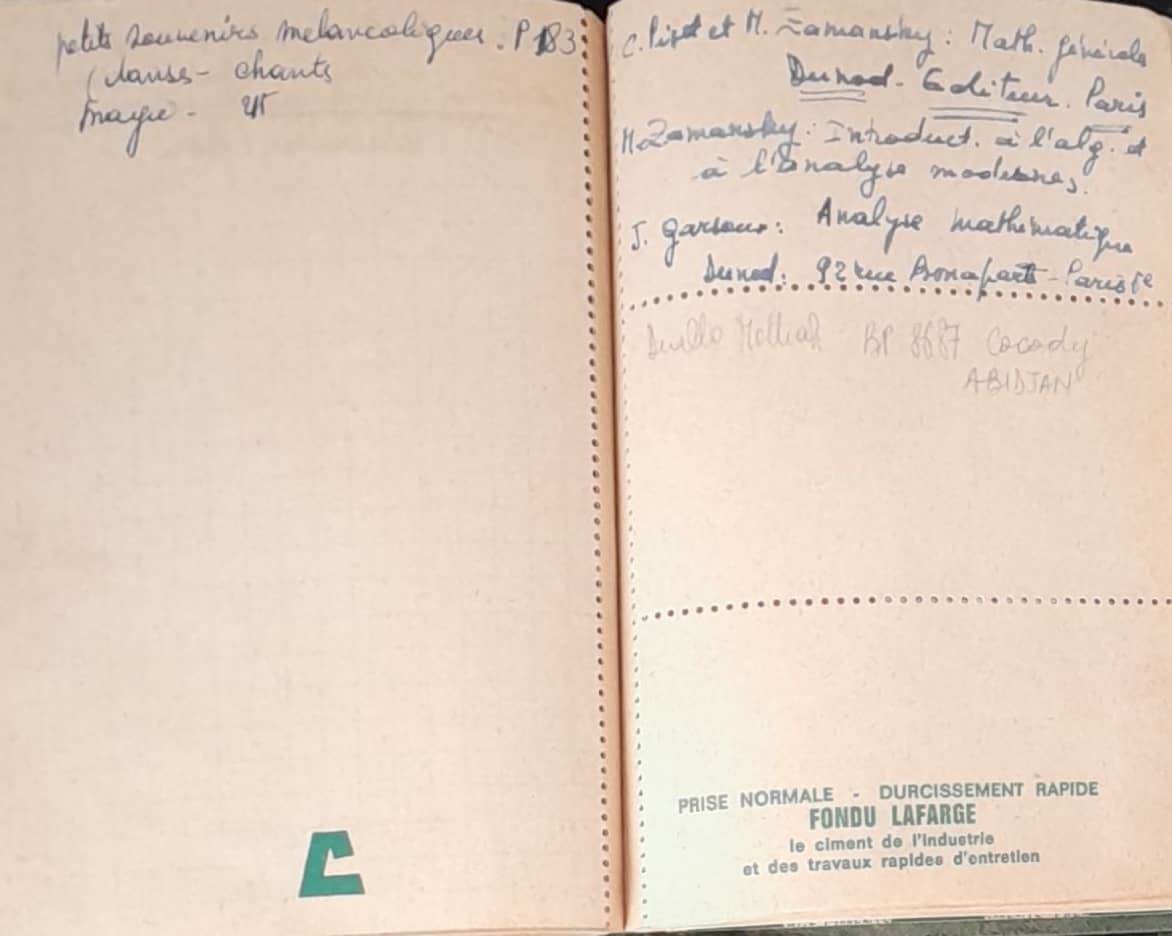 petits souvenirs melancoliques. P 183
(danse - chants
C. Pisot et M. Zamansky : Math. générales
Dunod - Editeur. Paris
M. Zamansky : Introduct. à l'alg. et
à l'Analyse modernes.
J. Garsoux : Analyse mathématique
Dunod : 92 rue Bonaparte - Paris 6e
BP 8687 Cocody
ABIDJAN
PRISE NORMALE - DURCISSEMENT RAPIDE
FONDU LAFARGE
le ciment de l'industrie
et des travaux rapides d'entretien